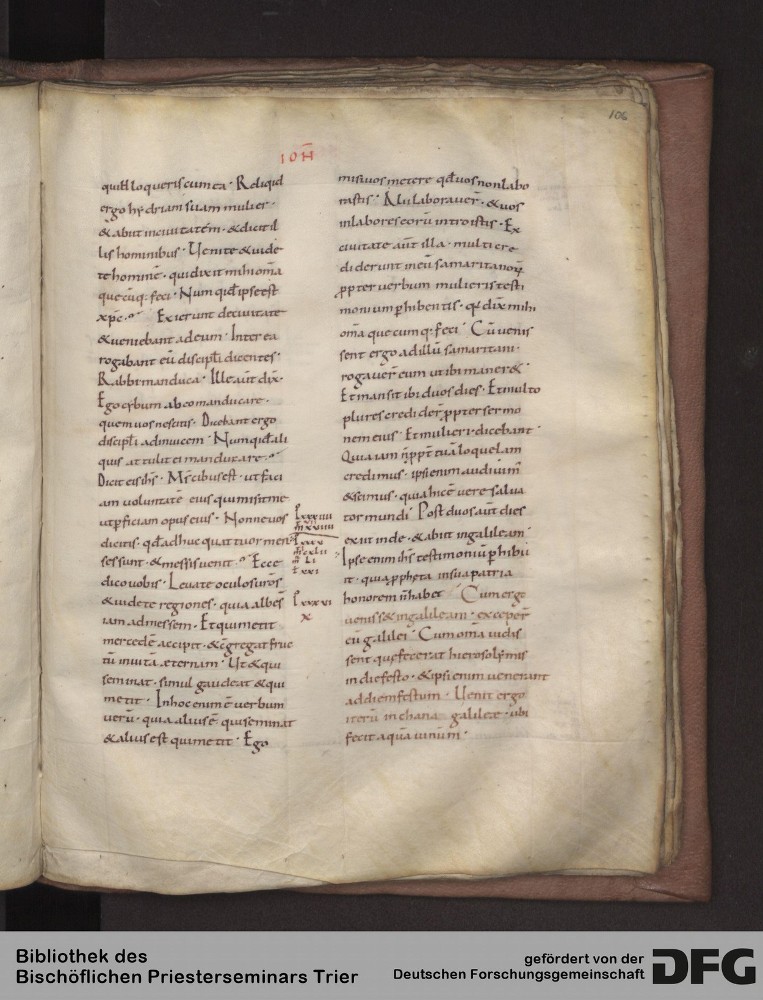 106
IOH̄
quid loqueris cum ea · Reliquid
ergo hydriam suam mulier ·
& abiit in civitatem · & dicit il
lis hominibus · Uenite & uide
te hominē · qui dixit mihi om̄a
quecūq; feci · Num quid ipse est
xp̄c · Exierunt de ciuitate
& ueniebant ad eum · Interea
rogabant eū discipl̄i dicentes ·
Rabbi manduca · Ille aūt dix̄ ·
Ego cybum abeo manducare ·
quem uos nescitis · Dicebant ergo
discipl̄i ad inuicem · Numquid ali
quis attulit ei manducare ·
Dicit eis ih̄s · M̄s cibus est · ut faci
am uoluntatē eius qui misit me
ut p̄ficiam opus eius · Nonne uos
dicitis · qd̄ adhuc quattuor men
ses sunt · & messis uenit · Ecce
dico uobis · Leuate oculos ur̄os
& uidete regiones · quia albę s̄
iam ad messem · Et qui metit
mercedē accipit · & c̄gregat fruc
tū in uitā ęternam · Ut & qui
seminat · simul gaudeat & qui
metit · In hoc enim ē uerbum
uerū · quia alius ē qui seminat
& alius est qui metit · Ego
lxxxiiii
lxxxv
lxxxvi
x
misi uos metere qd̄ uos non labo
rastis · Alii laborauer̄ · & uos
in labores eorū introistis · Ex
ciuitate aūt illa · multi cre
diderunt in eū samaritanorū
ꝓpter uerbum mulieris testi
monium ꝑhibentis · q̄ dix̄ mihi
om̄a quecumq; feci · Cū uenis
sent ergo ad illū samaritani ·
rogauer̄ eum ut ibi maner&
Et mansit ibi duos dies · Et multo
plures credider̄ ꝓpter sermo
nem eius · Et mulieri dicebant ·
Quia iam n̄ ꝓpt̄ tuā loquelam
credimus · ipsi enim audiuim̄
& scimus · quia hic ē uere salua
tor mundi · Post duos aūt dies
exiit inde · & abiit in galileam ·
Ipse enim ih̄s testimoniū ꝑhibu
it · quia ꝓpheta in sua patria
honorem n̄ habet · Cum ergo
ueniss& in galileam · exceper̄
eū galilei · Cum om̄a uidis
sent quę fecerat hierosolymis
in die festo · & ipsi enim uenerant
ad diem festum · Uenit ergo
iterū in chana galileę · ubi
fecit aquā uinum ·
Bibliothek des
Bischöflichen Priesterseminars Trier
gefördert von der
Deutschen Forschungsgemeinschaft
DFG